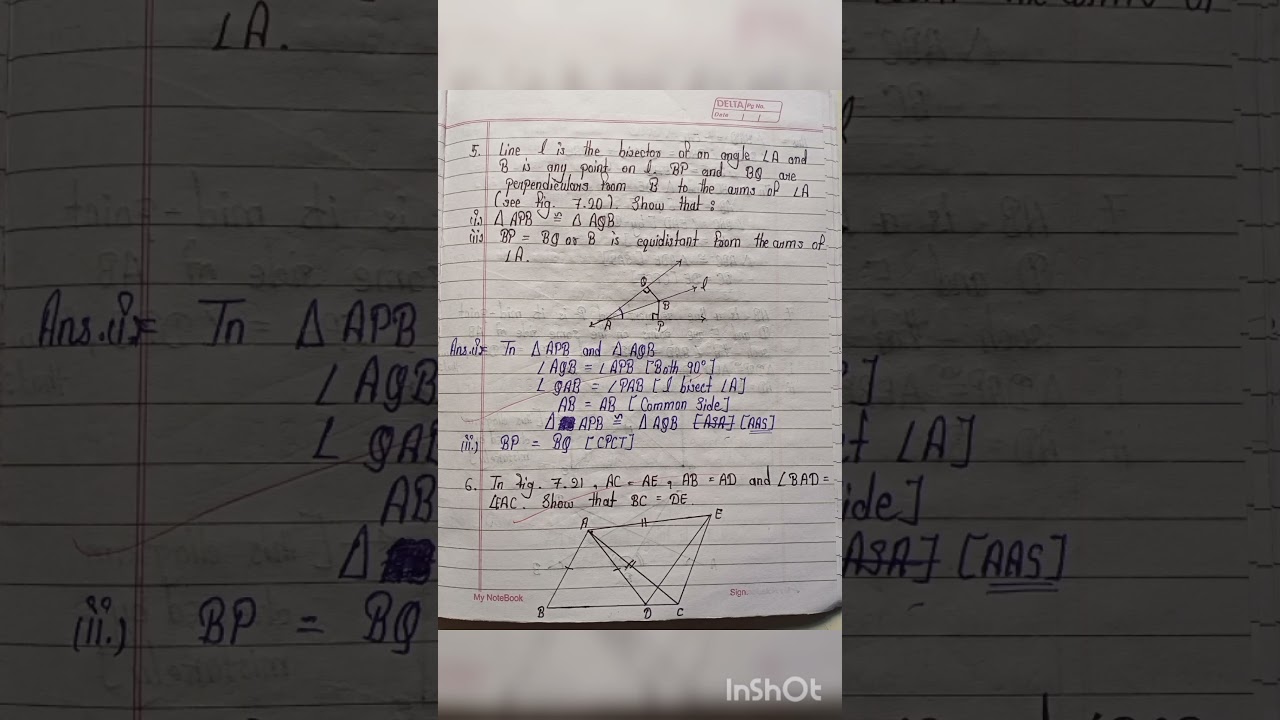 ∠A.
DELTA Pg No.
Date / /
5. Line l is the bisector of an angle ∠A and
B is any point on l. BP and BQ are
perpendiculars from B to the arms of ∠A
(see fig. 7.20). Show that :
(i.) Δ APB ≅ Δ AQB
(ii) BP = BQ or B is equidistant from the arms of
∠A.
Q
l
B
A
P
Ans.(i)= In Δ APB and Δ AQB
∠AQB = ∠APB [Both 90°]
∠QAB = ∠PAB [l bisect ∠A]
AB = AB [Common Side]
Δ APB ≅ Δ AQB [ASA] [AAS]
(ii.) BP = BQ [CPCT]
6. In Fig. 7.21, AC = AE, AB = AD and ∠BAD =
∠EAC. Show that BC = DE
A
E
B
D
C
My NoteBook
Sign.
Ans.(i)= In Δ APB
∠AQB
∠QAB
AB
Δ
(ii.) BP = BQ
]
ct ∠A]
ide]
ASA] [AAS]
InShOt